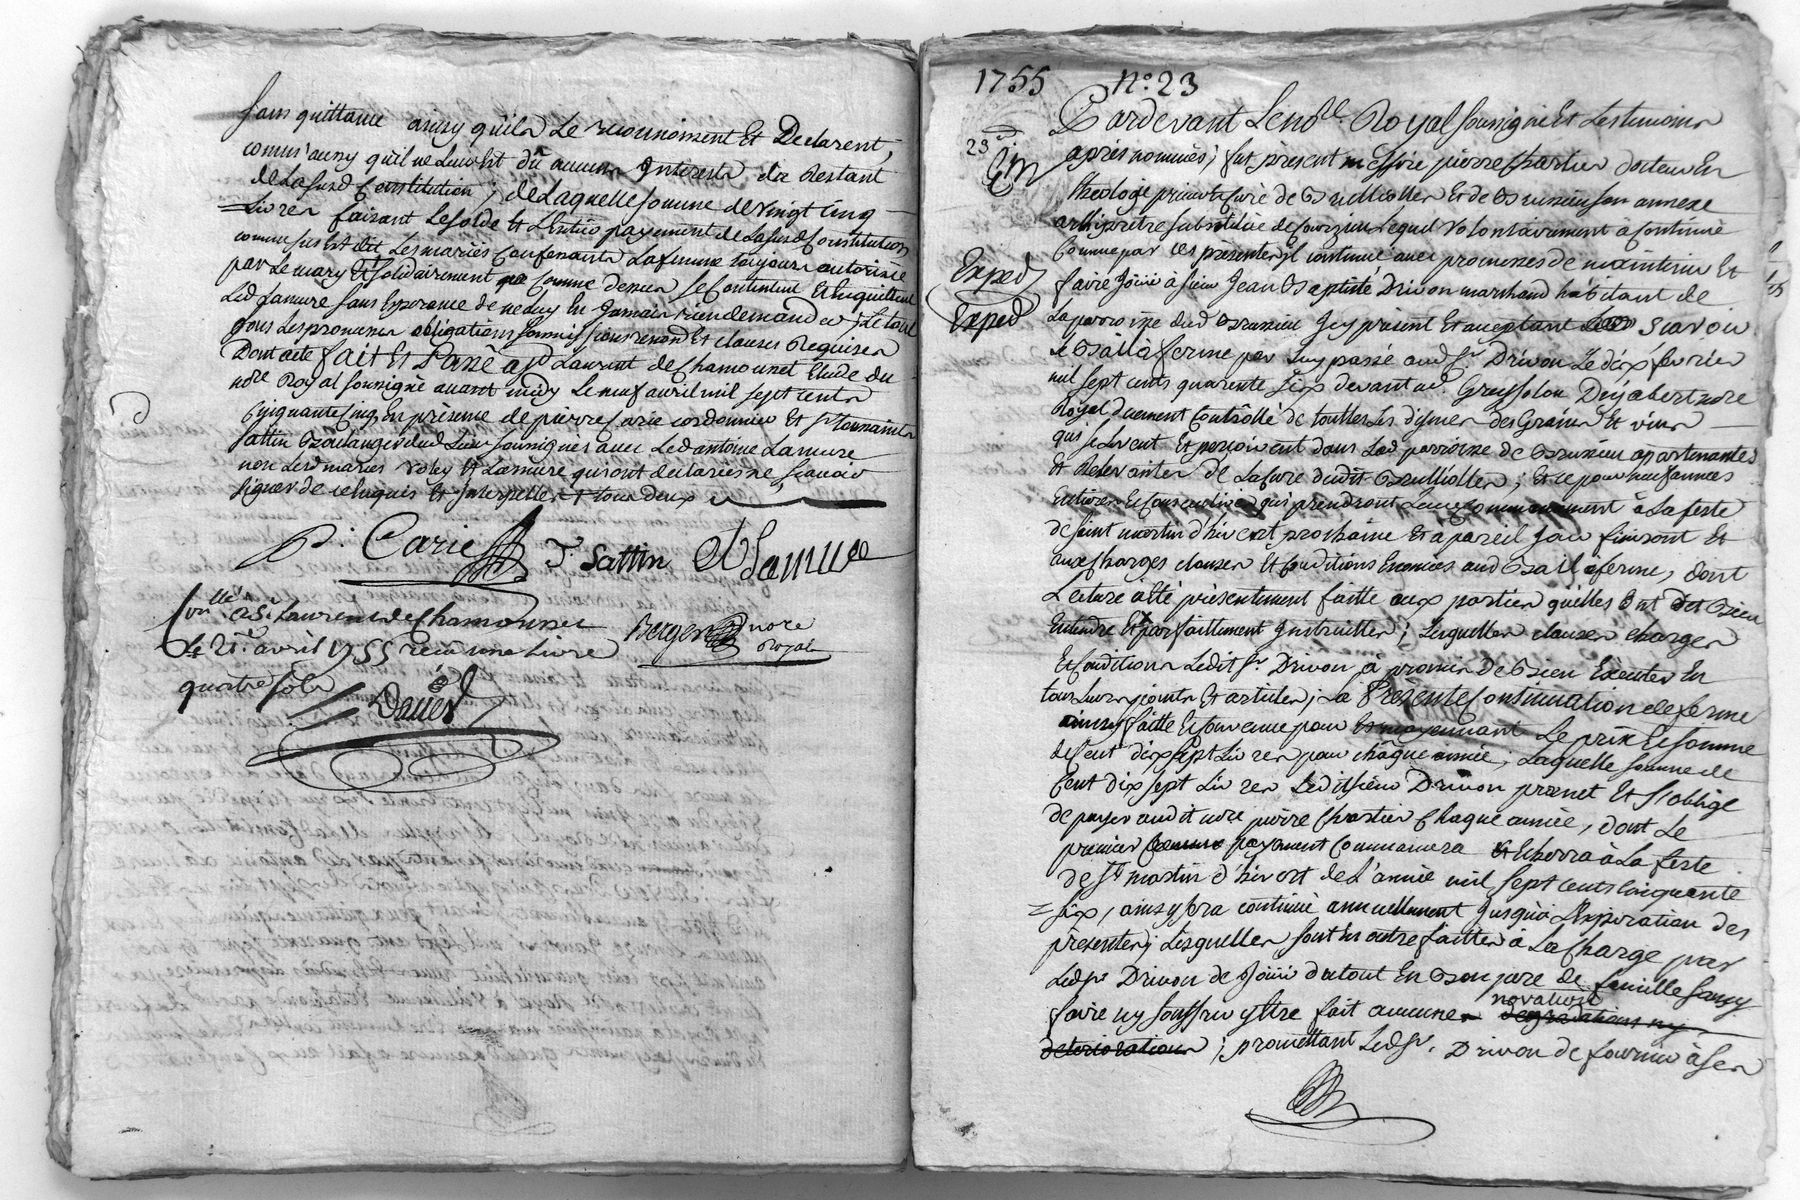 sans quittance ainsy quils le reconnoissent Et Declarent,
comm'aussy qu'il ne leur est dû aucuns Interests du Restant
de lasusd Constitution; de laquelle somme de vingt Cinq
Livres faisant lesolde Et l'Entier payement de lasusd Constitution
comme sus Est dit Les mariés Confessants lafemme toujours autorisée
par le mary Et solidairement comme dessus se Contentent Et En quittent
led Lamure sans Esperance de jamais rien demander, Le tout
sous les promesses obligations soumissions renond Et clauses Requises
Dont acte fait Et Passé a st Laurent de Chamousset Etude du
nore Royal soussigné avant midy le neuf avril mil sept cents
Cinquante Cinq En présence de pierre Carie cordonnier Et sr
Sattin Boulanger dud Lieu soussignés avec led antoine Lamure
non lesd mariés Et Lamure qui ont déclaré ne scavoir
signer de ce Enquis Et Interpellés tous deux
P. Carie
J Sattin
Lamure
Conllé a St Laurent de Chamousset
Le 21e. avril 1755 reçu une livre
quatre sols
Berger nore
Royal
1755 No. 23
23e
Exped
Exped
Pardevant Le nore Royal soussigné Et Les temoins
après nommés; fut présent messire pierre Chartier docteur En
theologie prieur Et Curé de Brulliolles Et de Brussieu son annexe
archipretre substitué de Courzieu Lequel volontairement à Continué
Comme par ces présentes Il continue avec promesses de maintenir Et
faire Jouir à sieur Jean Baptiste Drivon marchand habitant de
La parroisse dud Brussieu Icy présent Et acceptant Scavoir
le Bail à ferme par luy passé aud Sr. Drivon Le dix fevrier
mil sept cents quarente six devant me Grusselon Dejabert nore
Royal duement Contrôllé de touttes Les dismes des Grains Et vins
qui se levent Et perçoivent dans lad parroisse de Brussieu apartenantes
Et dependantes de La Cure dudit Brulliolles; Et ce pour neuf années
Entieres Et Consecutives qui prendront Leur Commencement à La feste
de saint martin d'hivert prochaine Et a pareil jour finiront Et
aux charges clauses Et Conditions Enoncées aud Bail à ferme, dont
Lecture à été présentement faitte aux parties quelles Ont dit Bien
Entendre Et parfaittement Instruittes; Lesquelles clauses charges
Et Conditions Ledit Sr. Drivon à promis De Bien Executer En
tous leurs points Et articles; La Presente Continuation de ferme
ainsy faitte Et Convenue pour Et moyennant Le prix Et somme
de Cent dix sept Livres pour chaque année, Laquelle somme de
Cent dix sept Livres Ledit sieur Drivon promet Et s'oblige
de payer audit messire pierre Chartier chaque année, dont Le
premier payement Commancera Et Echerra à La feste
de St martin d'hivert de L'année mil sept cents Cinquante
six, ainsy sera continué annuellement Jusqu'à L'Expiration des
présentes; Lesquelles sont En outre faittes à La Charge par
Led Sr Drivon de Jouir du tout En Bon pere de famille sans y
novations
faire ny souffrir y Etre fait aucunes degradations ny
deteriorations; promettant Led Sr. Drivon de fournir à ses